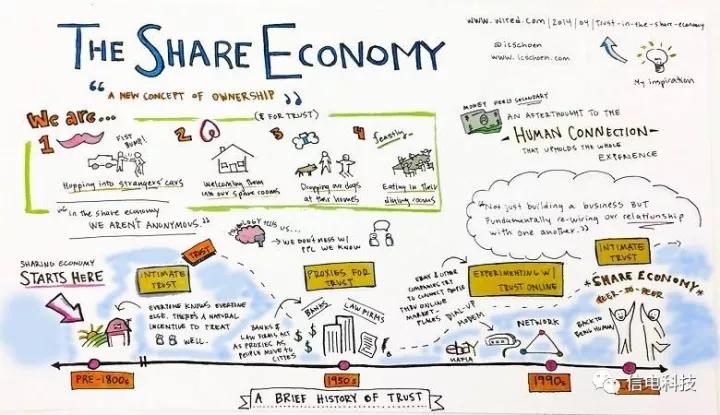 THE SHARE ECONOMY
www.wired.com/2014/04/trust-in-the-share-economy
@icschoen
www.icschoen.com
My inspiration
"A NEW CONCEPT OF OWNERSHIP"
(& FOR TRUST)
We are...
1
FIST BUMP!
Hopping into strangers' cars
2
Welcoming them into our spare rooms
3
Dropping our dogs at their homes
4
feasting
Eating in their dining rooms
MONEY FEELS SECONDARY
AN AFTERTHOUGHT TO THE
HUMAN CONNECTION
THAT UPHOLDS THE WHOLE
EXPERIENCE
"in the share economy
WE AREN'T ANONYMOUS."
TELLS US...
WE DON'T MESS W/
PPL WE KNOW
"Not just building a business BUT
Fundamentally re-wiring our relationship
with one another."
SHARING ECONOMY
STARTS HERE
INTIMATE
TRUST
TRUST
EVERYONE KNOWS EVERYONE
ELSE, THERE'S A NATURAL
INCENTIVE TO TREAT
WELL.
PROXIES FOR
TRUST
BANKS
LAW FIRMS
BANKS &
LAW FIRMS ACT
AS PROXIES AS
PEOPLE MOVE TO
CITIES
EBAY & OTHER
COMPANIES TRY
TO CONNECT PEOPLE
THEN ONLINE
MARKET-
PLACES
EXPERIMENTING W/
TRUST ONLINE
DIAL-UP
MODEM
MAFIA
NETWORK
INTIMATE
TRUST
SHARE ECONOMY
PEER-TO-PEER
BACK TO
BEING HUMAN
PRE-1800s
1950's
1990s
A BRIEF HISTORY OF TRUST
信电科技